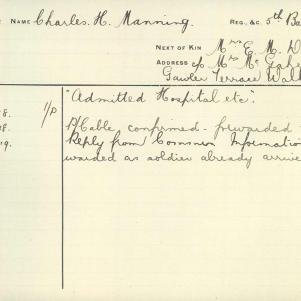 NAME Charles H. Manning. REG. &C. 5th Ba
NEXT OF KIN Mrs E. M. D
ADDRESS c/o Mrs Mc Gahe
Gawler Terrace Walk
"Admitted Hospital etc".
1/P P/Cable confirmed - forwarded -
Reply from Common Information
warded as soldier already arrive